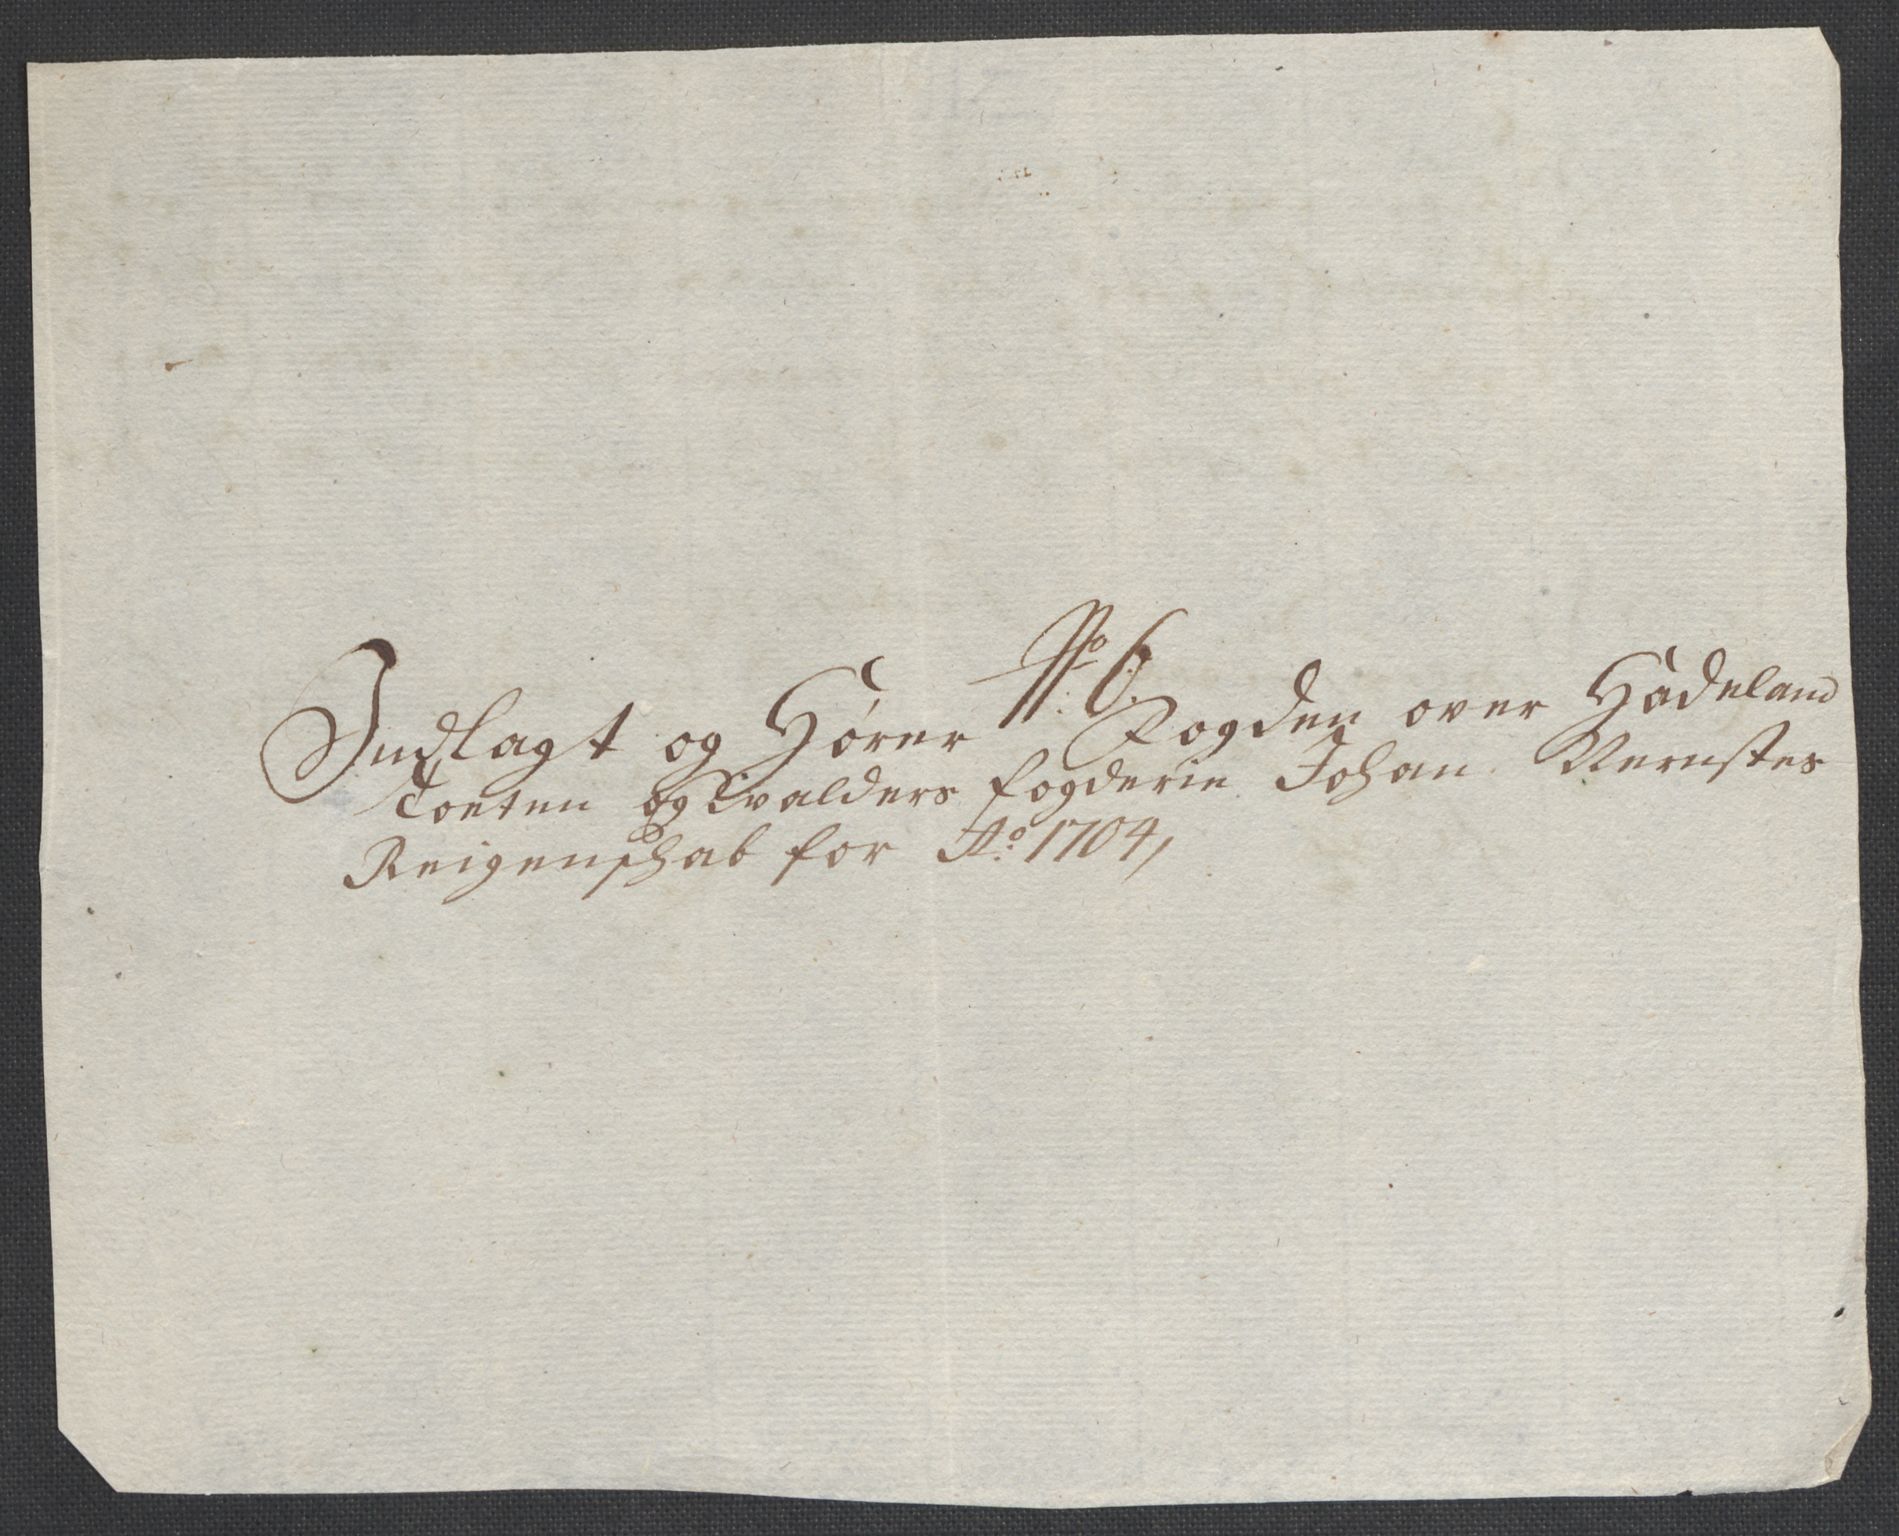 No 6.
Indlagt og Hører Fogden over Hadeland
Toeten og Valders fogderie Johan Vernstes
Reigenschab for Ao 1704,